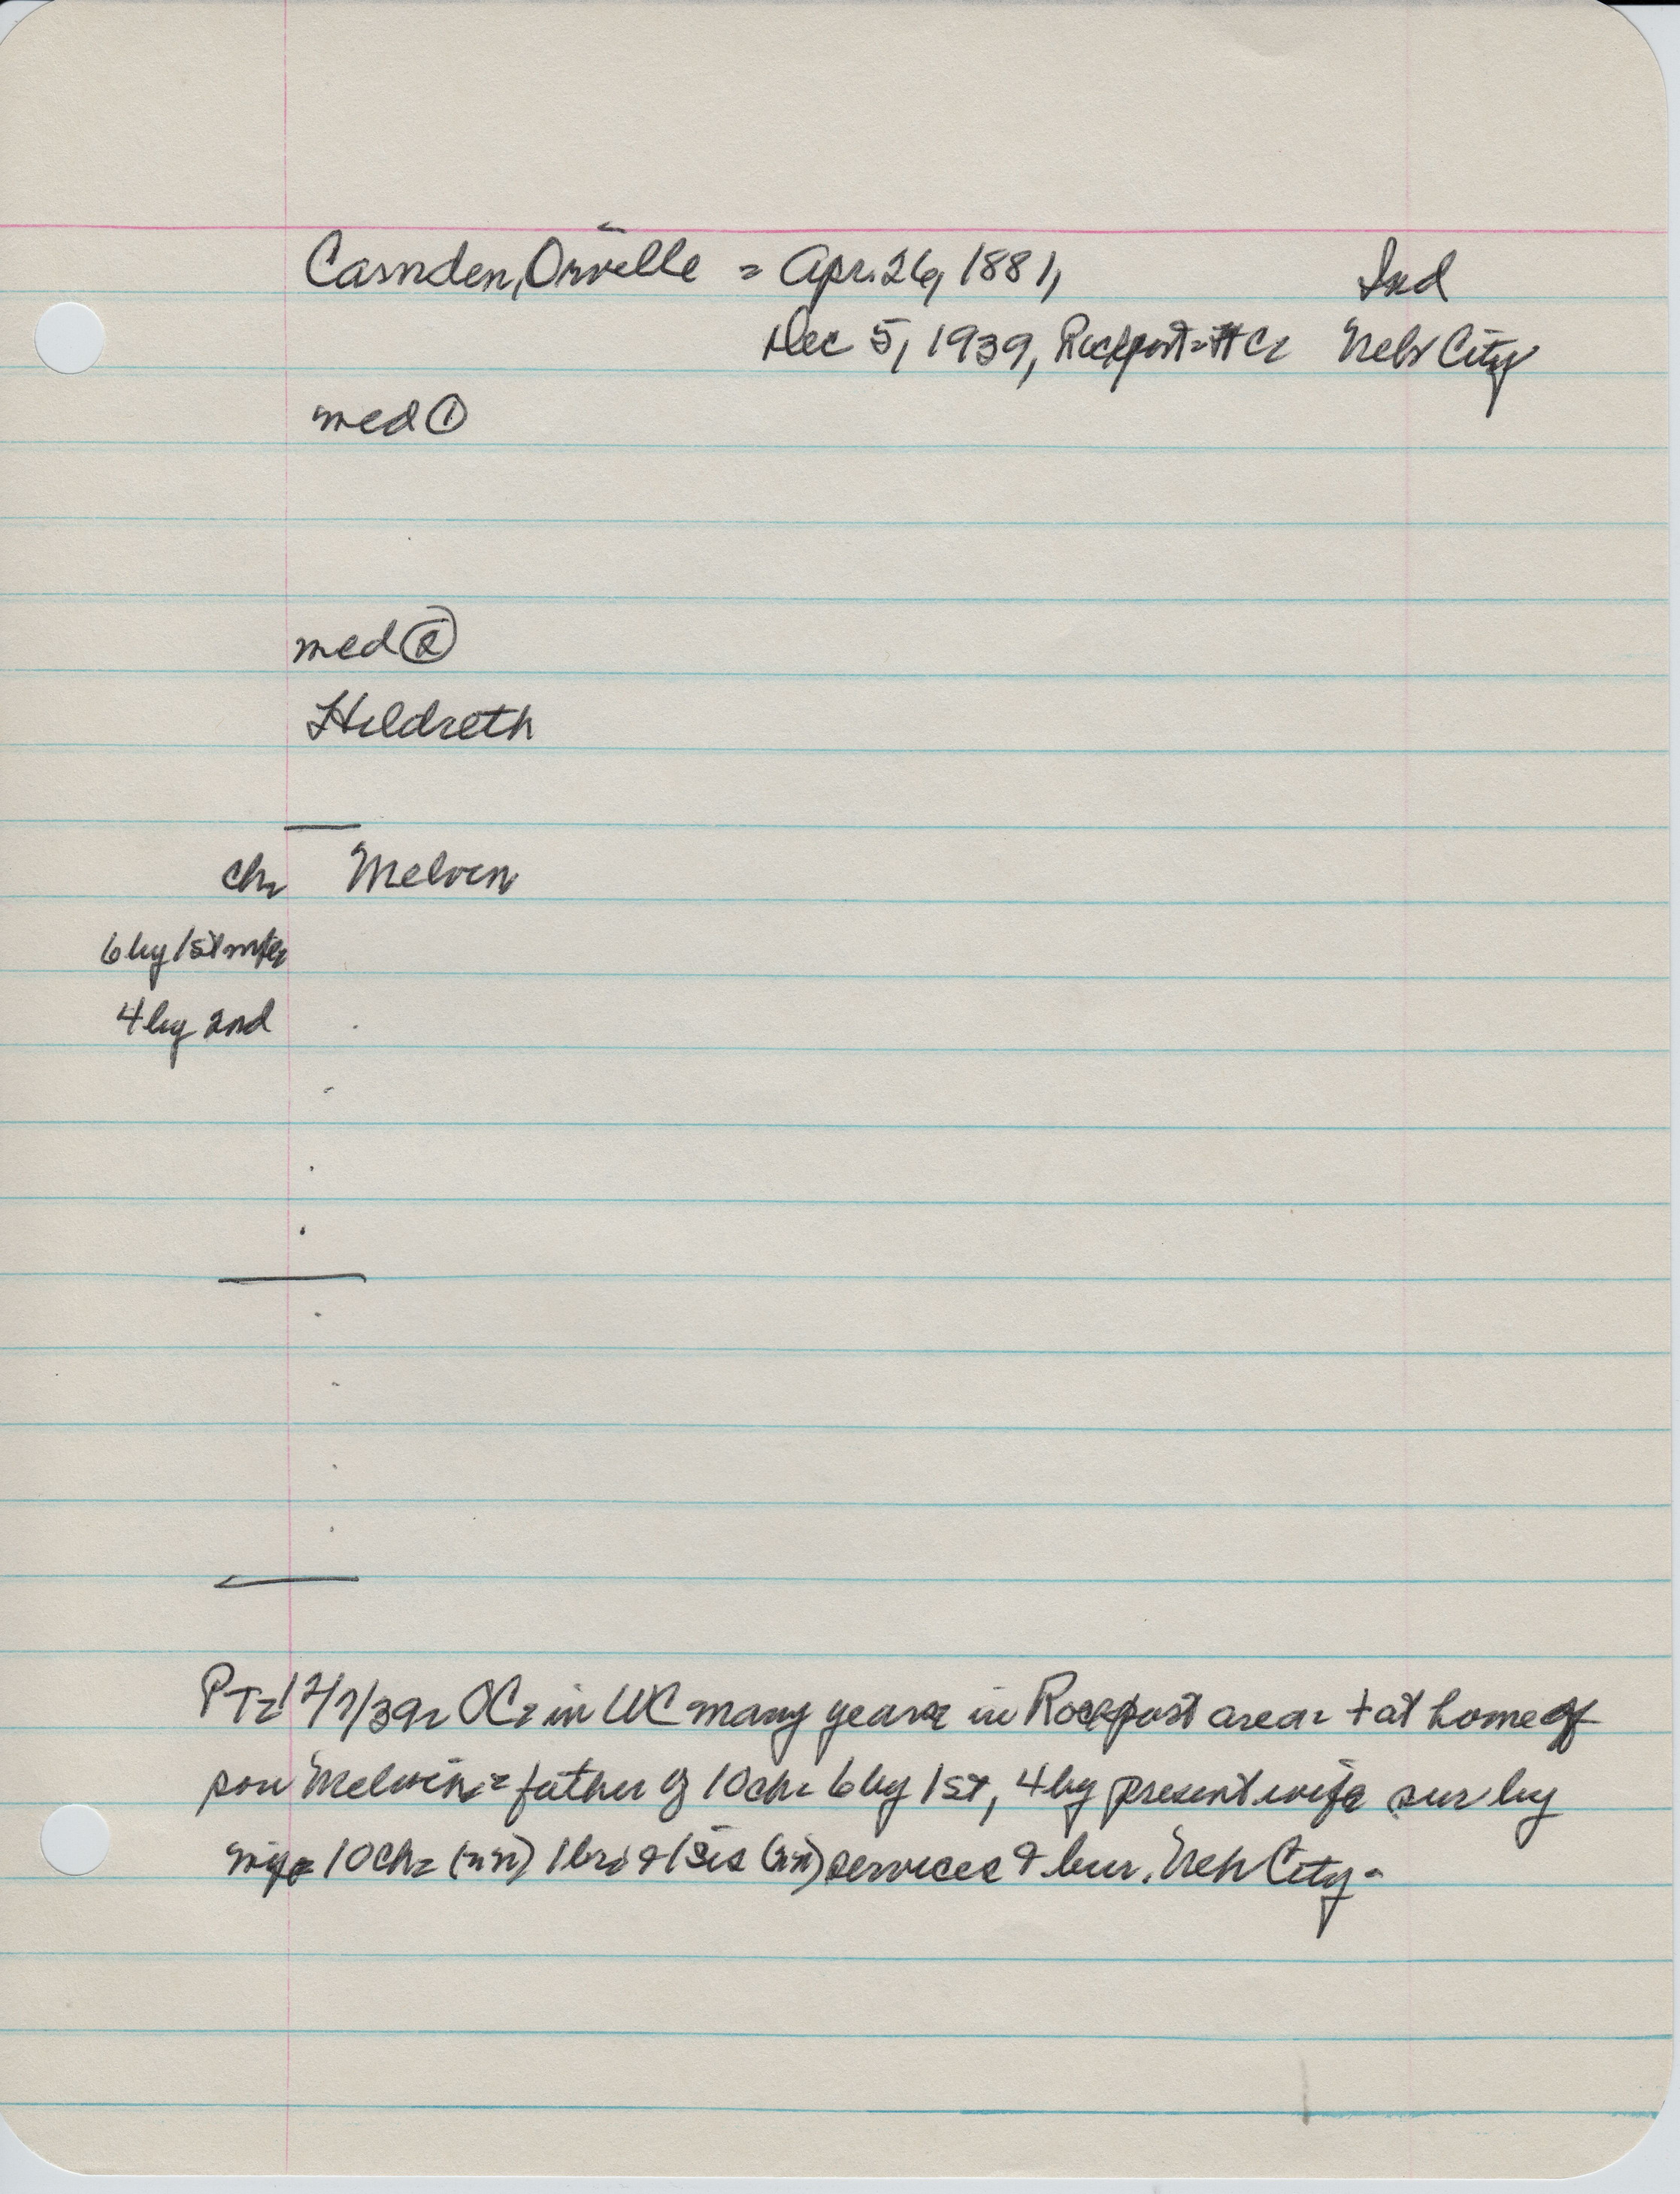 Camden, Orville = Apr. 26, 1881, Ind
Dec 5, 1939, Rockport = HC = Neb City
med ①
med ②
Hildreth
ch = Melvin
6 by 1st wife
4 by 2nd
PT = 12/7/39 = OC = in UC many years in Rockport area = + at home of
son Melvin = father of 10 ch = 6 by 1st, 4 by present wife sur by
10 ch = (nn) 1 bro & 1 sis (nn) services & bur. Neb City -